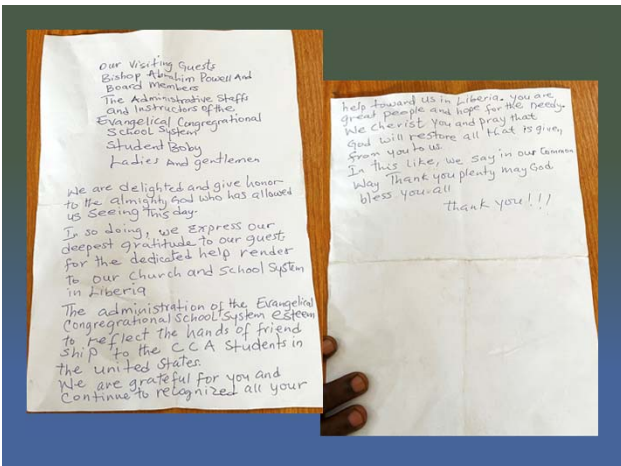 Our Visiting Guests
Bishop Abrahim Powell And
Board Members
The Administrative Staffs
and Instructors of the
Evangelical Congregrational
School System
Student Boby
Ladies And gentlemen
We are delighted and give honor
to the almighty God who has allowed
us seeing this day.
In so doing, we express our
deepest gratitude to our guest
for the dedicated help render
to our church and School System
in Liberia
The administration of the Evangelical
Congregrational School System esteem
to reflect the hands of friend
ship to the CCA Students in
the united States.
We are grateful for you and
Continue to recognized all your
help toward us in Liberia. you are
great people and hope for the needy.
We cherist you and pray that
God will restore all that is given,
from you to us.
In this like, we say in our Common
Way Thank you plenty may God
bless you all
thank you!!!